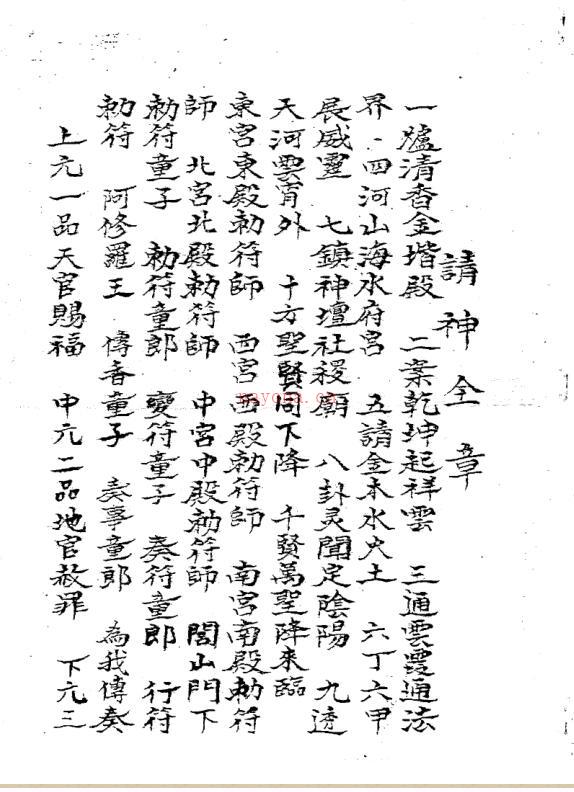 請神全章
一爐清香金堦殿 二案乾坤起祥雲 三通雲霞通法
界 四河山海水府宮 五請金木水火土 六丁六甲
展威靈 七鎮神壇社稷廟 八卦灵聞定陰陽 九透
天河雲宵外 十方聖賢同下降 千賢萬聖降來臨
東宮東殿勅符師 西宮西殿勅符師 南宮南殿勅符
師 北宮北殿勅符師 中宮中殿勅符師 閭山門下
勅符童子 勅符童郎 變符童子 奏符童郎 行符
勅符 阿修羅王 傳香童子 奏事童郎 為我傳奏
上元一品天官賜福 中元二品地官赦罪 下元三